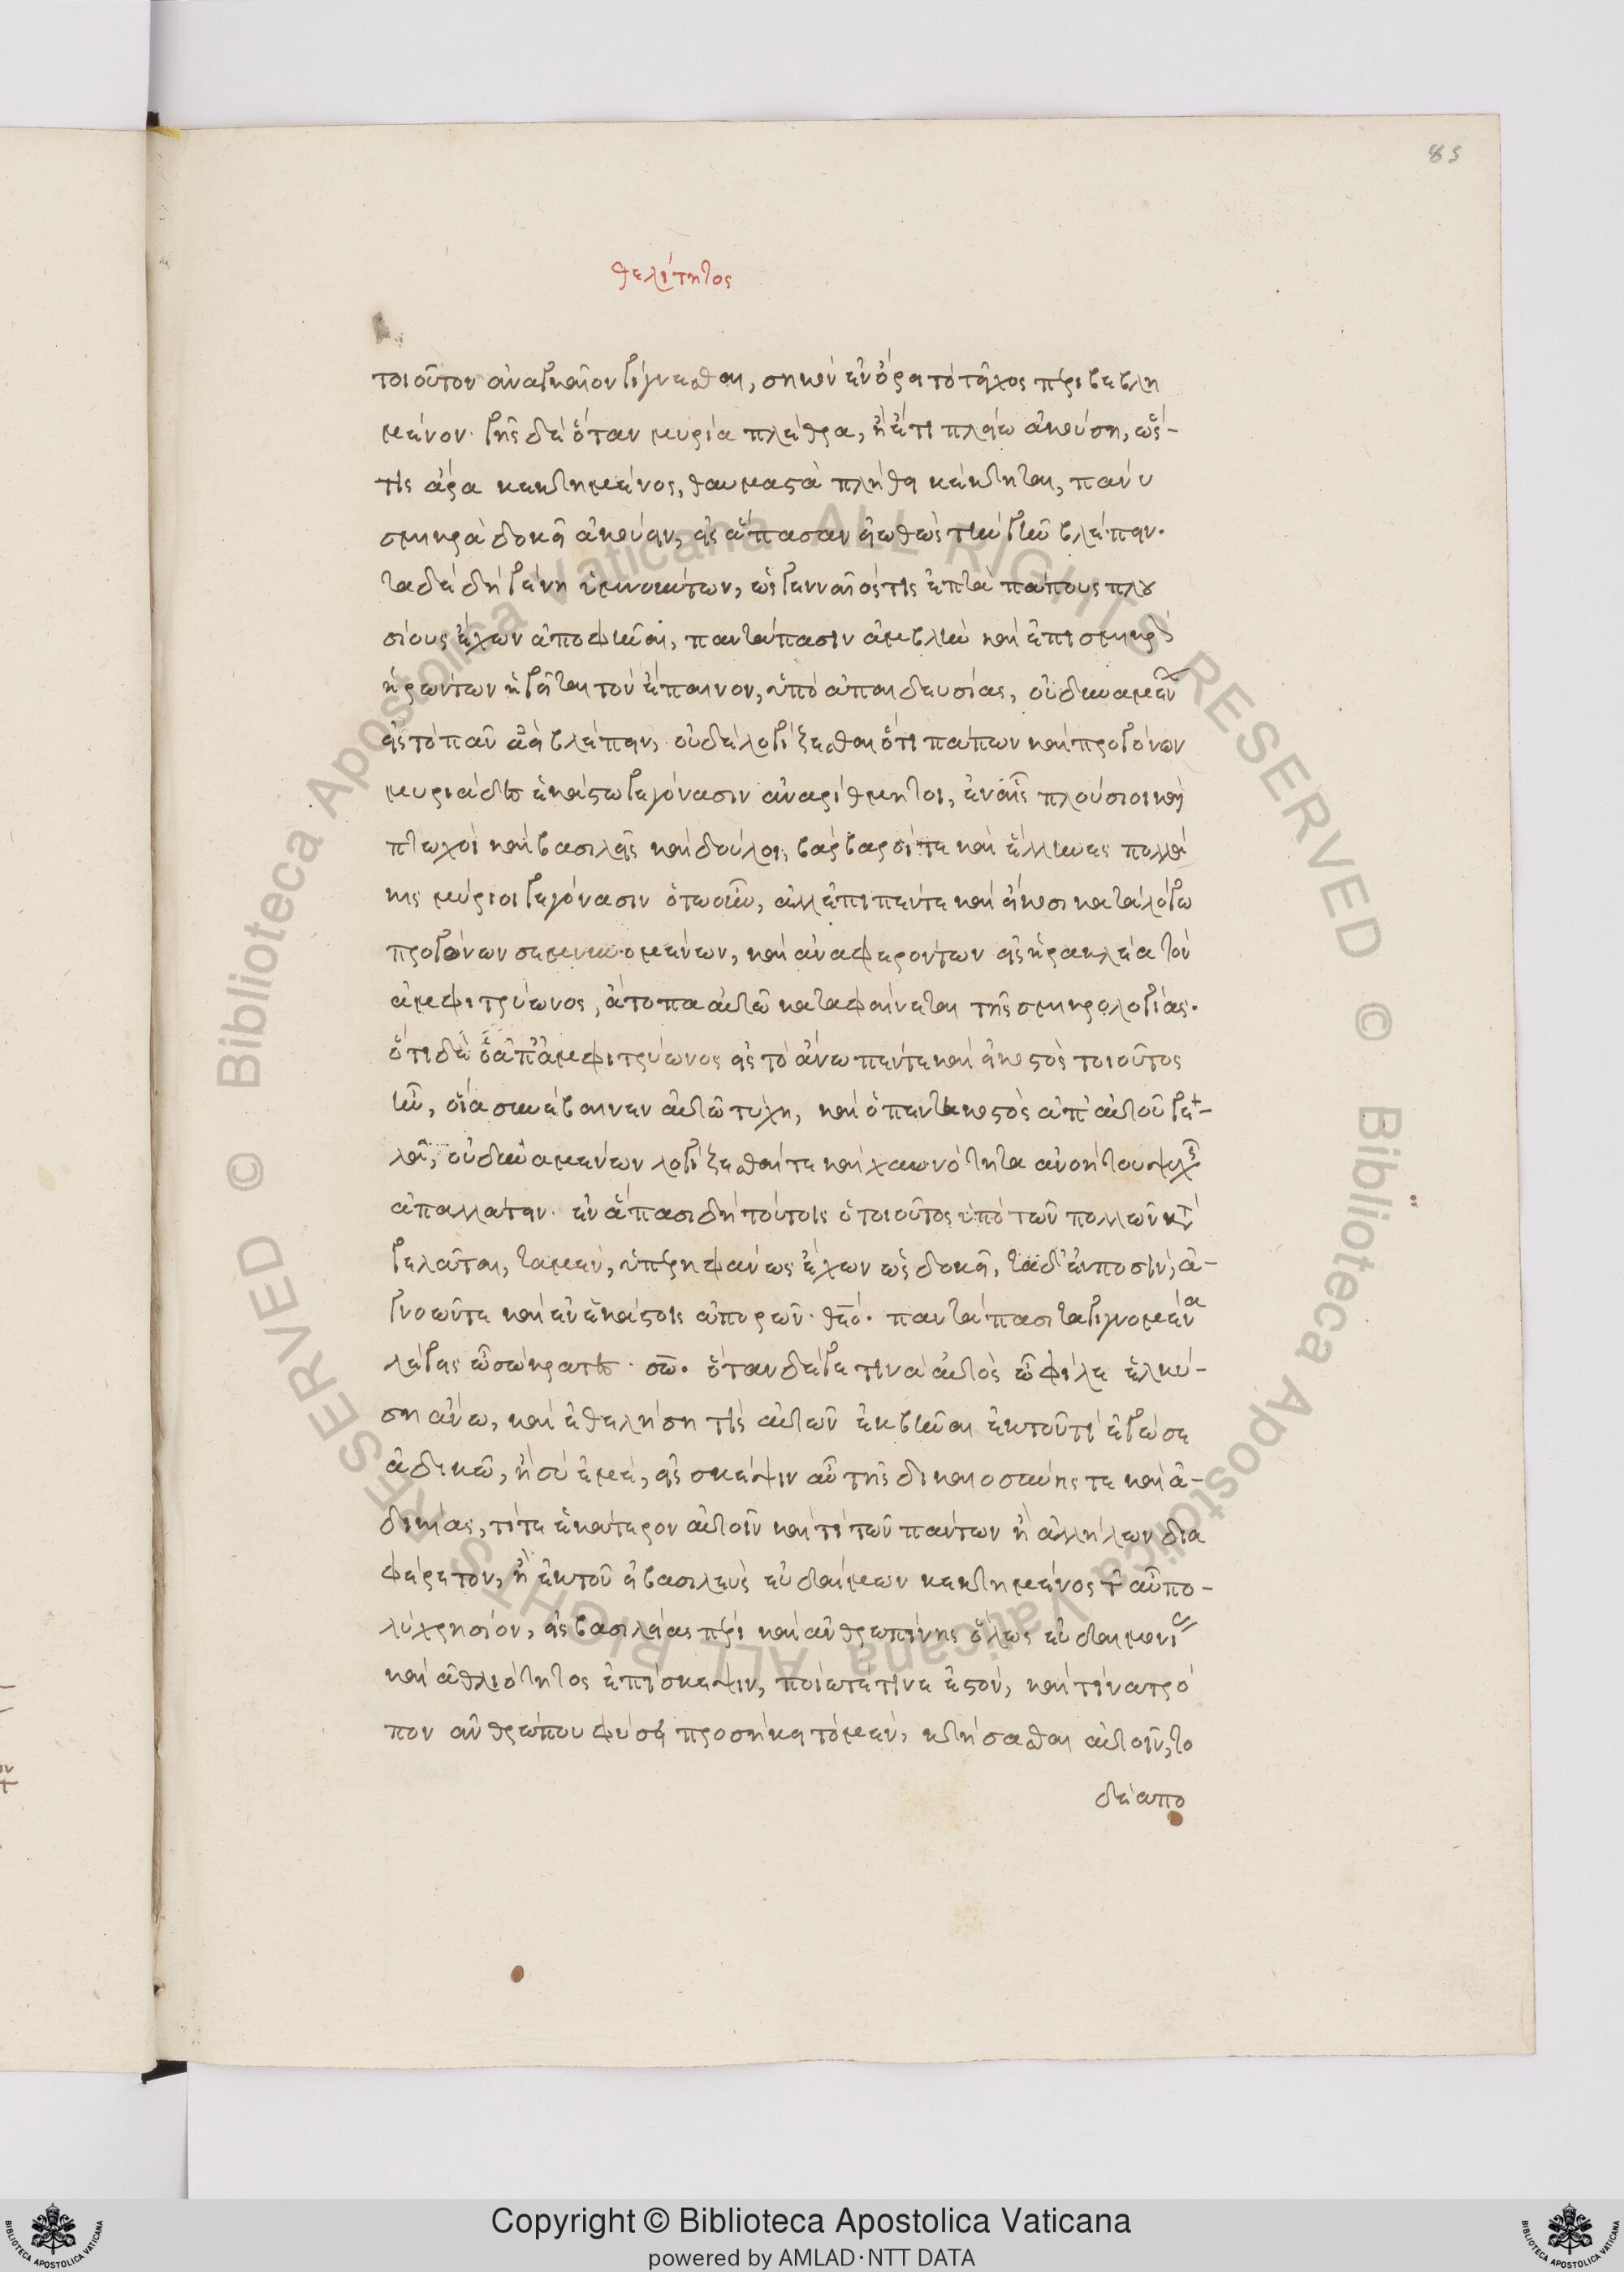 85
θεαίτητος
τοιοῦτον ἀναγκαῖον γίγνεσθαι, σηκὸν ἐν ὄρει τὸ τεῖχος περιβεβλη
μένον· γῆς δὲ ὅταν μυρία πλέθρα, ἢ ἔτι πλείω ἀκούση, ὥς-
τις ἄρα κεκτημένος, θαυμαστὰ πλήθει κέκτηται, πάνυ
σμικρὰ δοκεῖ ἀκούειν, εἰς ἅπασαν εἰωθὼς τὴν γῆν βλέπειν.
τὰ δὲ δὴ γένη ὑμνούντων, ὡς γενναῖός τις ἑπτὰ πάπους πλου
σίους ἔχων ἀποφῆναι, παντάπασιν ἀμβλὺ καὶ ἐπὶ σμικρὸ
ὁρώντων ἡγεῖται τὸν ἔπαινον, ὑπὸ ἀπαιδευσίας, οὐ δυναμένων
εἰς τὸ πᾶν ἀεὶ βλέπειν, οὐδὲ λογίζεσθαι ὅτι πάπων καὶ προγόνων
μυριάδες ἑκάστω γεγόνασιν ἀναρίθμητοι, ἐν αἷς πλούσιοι καὶ
πτωχοὶ καὶ βασιλεῖς καὶ δοῦλοι, βάρβαροί τε καὶ ἕλληνες πολλά
κις μύριοι γεγόνασιν ὁτωοῦν, ἀλλ' ἐπὶ πέντε καὶ εἴκοσι καταλόγω
προγόνων σεμνυνομένων, καὶ ἀναφερόντων εἰς ἡρακλέα τὸν
ἀμφιτρύωνος, ἄτοπα αὐτῶ καταφαίνεται τῆς σμικρολογίας.
ὅτι δὲ ὁ ἀπ' ἀμφιτρύωνος εἰς τὸ ἄνω πέντε καὶ εἰκοστὸς τοιοῦτος
ἦν, οἵα συνέβαινεν αὐτῶ τύχη, καὶ ὁ πεντηκοστὸς ἀπ' αὐτοῦ γε-
λᾶ, οὐ δυναμένων λογίζεσθαί τε καὶ χαυνότητα ἀνοήτου ψυχῆς
ἀπαλλάττειν. ἐν ἅπασι δὴ τούτοις ὁ τοιοῦτος ὑπὸ τῶν πολλῶν κατα
γελᾶται, τὰ μέν, ὑπερηφάνως ἔχων ὡς δοκεῖ, τὰ δ' ἐν ποσὶν, ἀ-
γνοῶντε καὶ ἐν ἑκάστοις ἀπορῶν. θεό. παντάπασι τὰ γιγνόμενα
λέγεις ὦ σώκρατες. σω. ὅταν δέ γε τινὰ αὐτὸς ὦ φίλε ἑλκύ-
ση ἄνω, καὶ ἐθελήση τὶς αὐτῶν ἐκβῆναι ἐκ τοῦ τί ἐγώ σε
ἀδικῶ, ἢ σὺ ἐμέ, εἰς σκέψιν αὖ τῆς δικαιοσύνης τε καὶ ἀ-
δικίας, τί τε ἑκάτερον αὐτοῖν καὶ τί τῶν πάντων ἢ ἀλλήλων δια
φέρετον, ἢ ἐκ τοῦ εἰ βασιλεὺς εὐδαίμων κεκτημένος τ' αὖ πο-
λὺ χρησίον, εἰς βασιλείας πέρι καὶ ἀνθρωπίνης ὅλως εὐδαιμονίας
καὶ ἀθλιότητος ἐπίσκεψιν, ποίω τέ τινε ἐστὸν, καὶ τίνα τρό
πον ἀνθρώπου φύσει προσήκει τὸ μέν, κτήσασθαι αὐτοῖν, τὸ
δὲ ἀπο
Copyright © Biblioteca Apostolica Vaticana
powered by AMLAD·NTT DATA